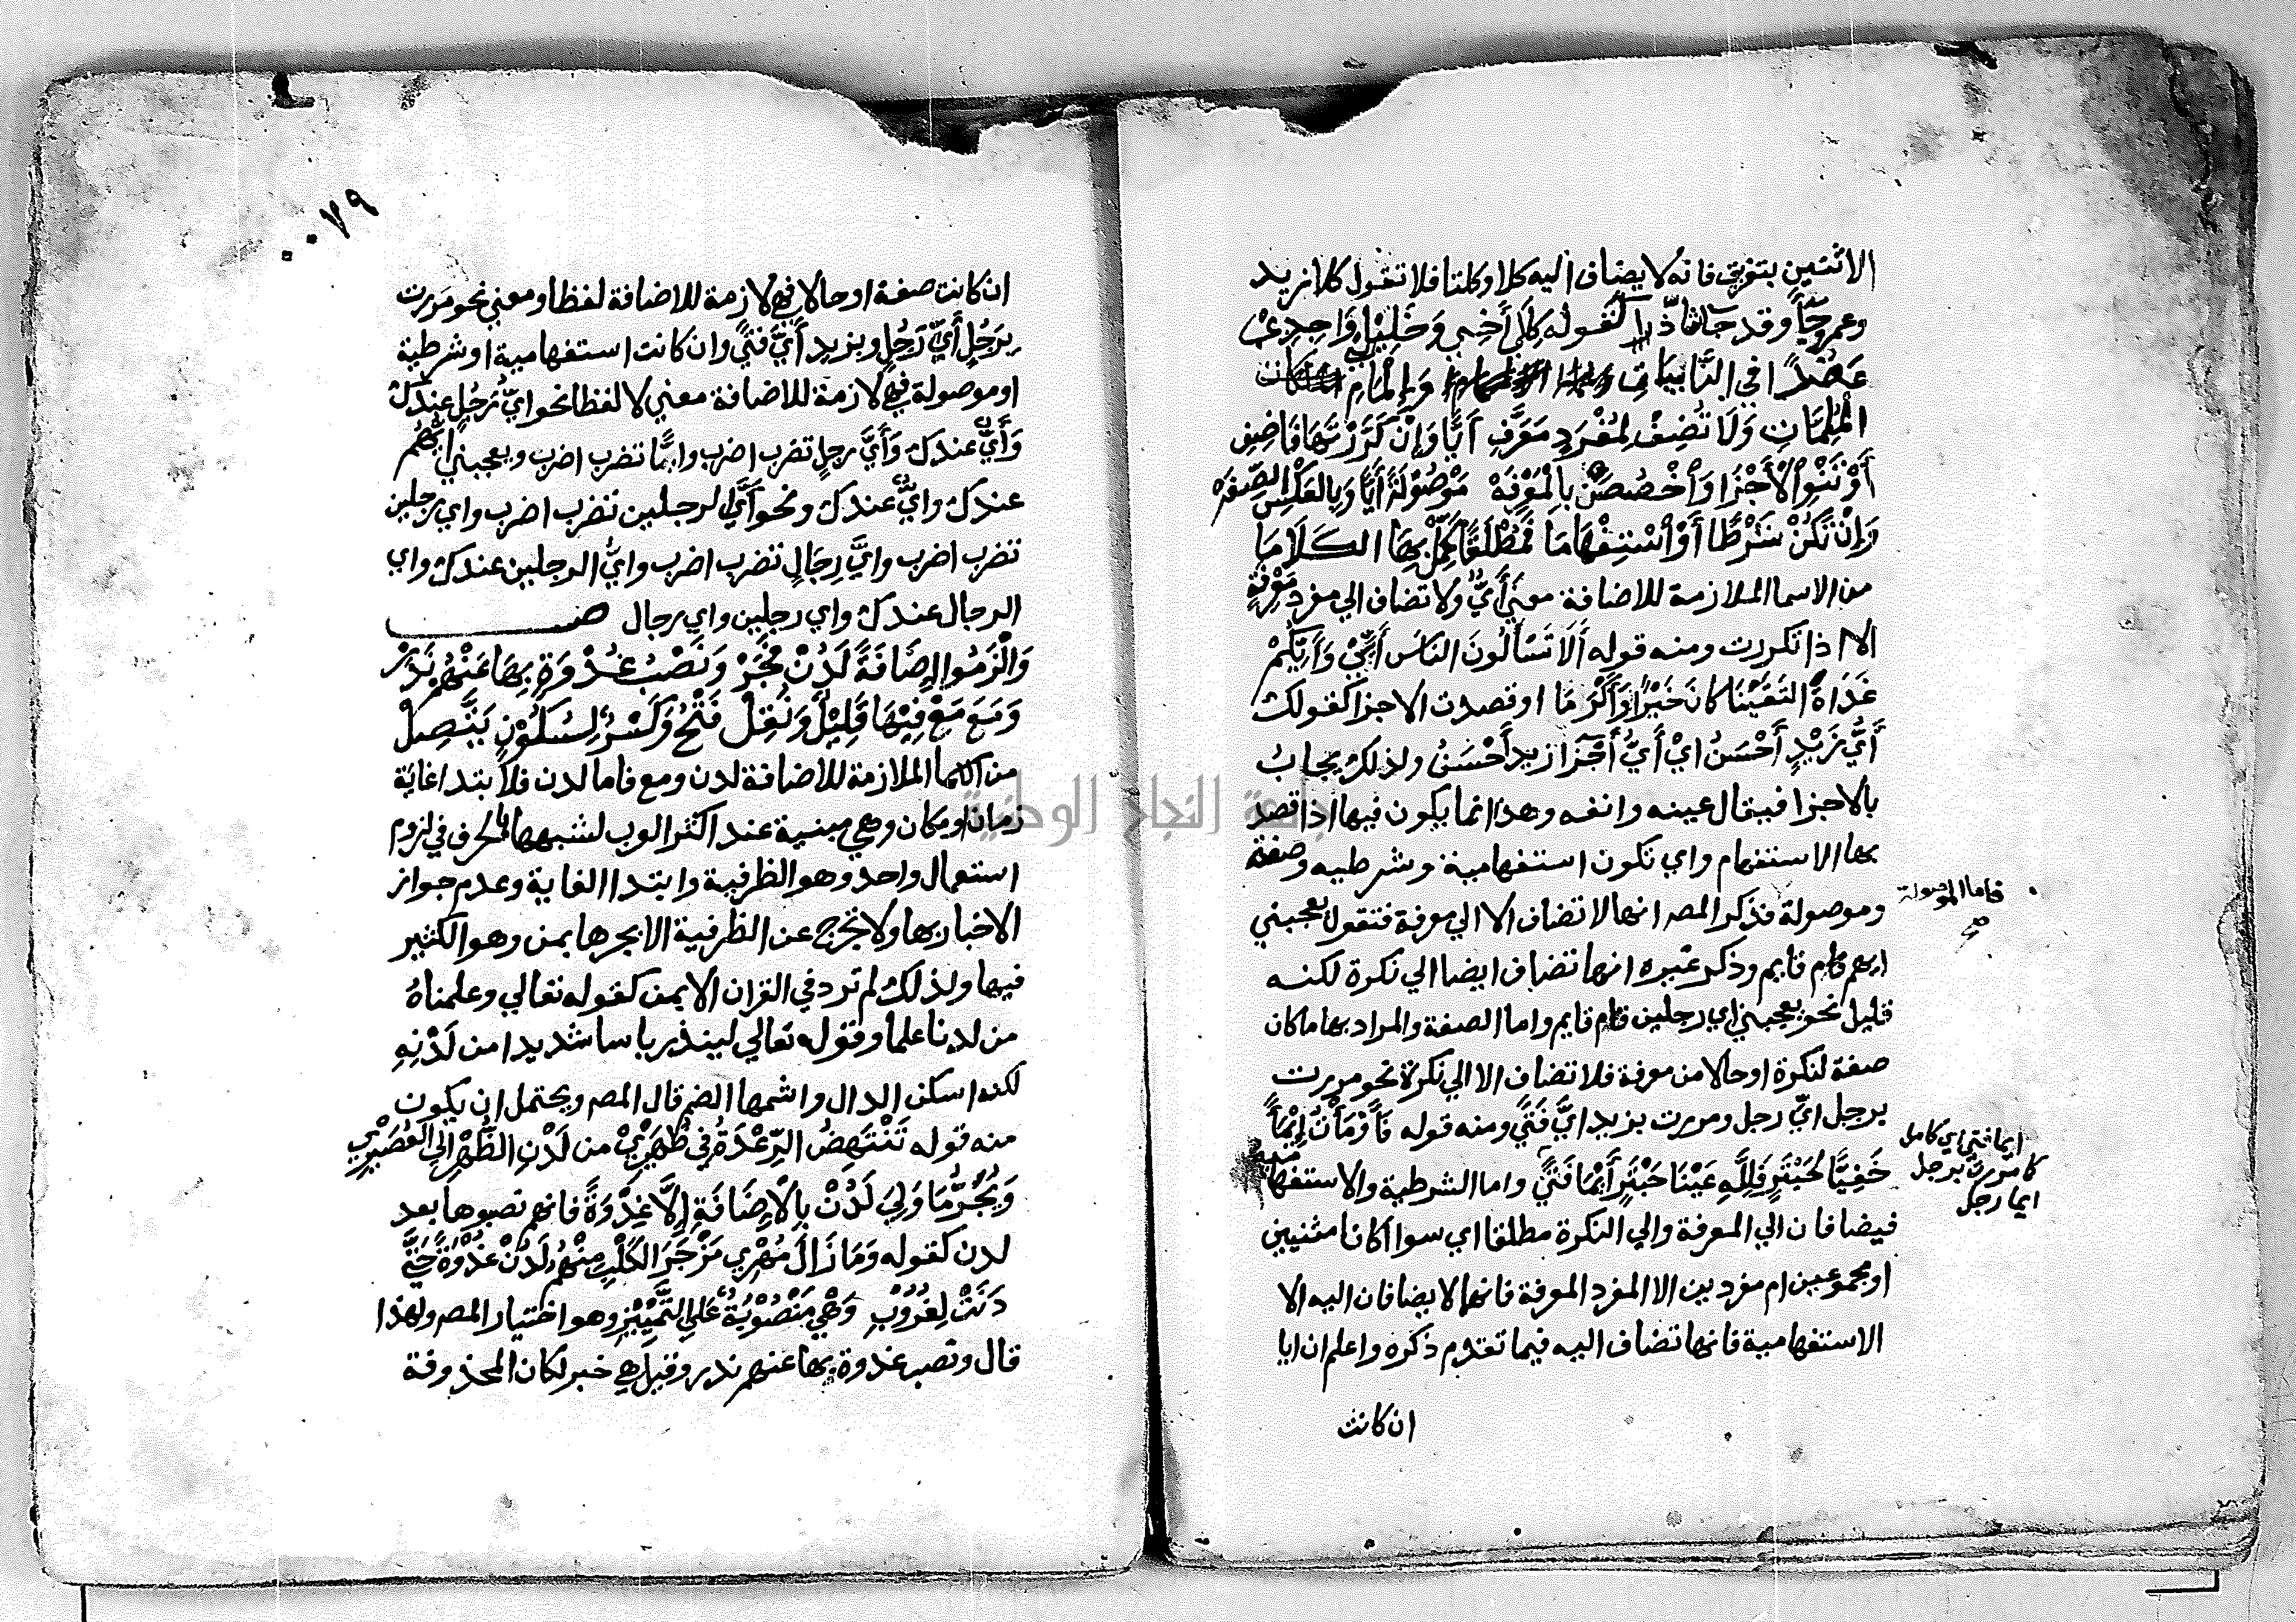 الاثنين بتفريق فانه لا يضاف اليه كلا وكلتا فلا تقول كلا زيد
وعمرو جآ وقد جا شاذا كقوله كِلَا أَخِي وَخَلِيْلِي وَاجِدِي
عَضُدًا في النَّائِبَاتِ وَإِلْمَامِ
الْمُلِمَّاتِ وَلَا تُضِفْ لِمُفْرَدٍ مُعَرَّفٍ أَيًّا وَإِنْ كَرَّرْتَهَا فَأَضِفِ
أَوْ تَنْوِ الْأَجْزَا وَاخْصُصَنْ بِالْمَعْرِفَهْ مَوْصُوْلَةً أَيًّا وَبِالعَكْسِ الصِّفَهْ
وَإِنْ تَكُنْ شَرْطًا أَوْ اسْتِفْهَامَا فَمُطْلَقًا كَمِّلْ بِهَا الكَلَامَا
من الاسما الملازمة للاضافة معني أَيٌّ ولا تضاف الي مفرد معرفةٍ
الا اذا تكررت ومنه قوله أَلَا تَسْأَلُونَ النَّاسَ أَيِّيْ وَأَيُّكُمْ
غَدَاةَ التَقَيْنَا كَانَ خَيْرًا وَأَكْرَمَا او قصدت الاجزا كقولك
أَيُّ زَيْدٍ أَحْسَنُ ايْ أَيُّ أَجْزَآ زيد أَحْسَنُ ولذلك يجاب
بالاجزا فيقال عينه وانفه وهذا انما يكون فيها اذا قصد
بها الاستفهام واي تكون استفهامية وشرطيه وصفة
وموصولة فذكر المصه انها لا تضاف الا الي معرفة فتقول يعجبني
فاما الموصولة
صح
ايهم قام قايم وذكر غيره انها تضاف ايضا الي نكرة لكنه
قليل نحو يعجبني اي رجلين قام قايم واما الصفة والمراد بها ما كان
صفة لنكرة او حالا من معرفة فلا تضاف الا الي نكرة نحو مررت
برجل ايّ رجل ومررت بزيد ايَّ فَتًي ومنه قوله فَأَوْمَأْتُ إِيْمَآً
خَفِيًّا لِحَبْتَرٍ فَلِلَّهِ عَيْنَا حَبْتَرٍ أَيَّمَا فَتًي واما الشرطية والاستفهامية
ايما فتي اي كامل
كامررت برجل
ايما رجل
فيضافان الي المعرفة والي النكرة مطلقا اي سوا اكانا مثنيين
او مجموعين ام مفردين الا المفرد المعرفة فانهما لا يضافان اليه الا
الاستفهامية فانها تضاف اليه فيما تقدم ذكره واعلم ان ايا
ان كانت
٠٠٧٩
ان كانت صفة او حالا فهي لازمة للاضافة لفظا ومعني نحو مَررت
بِرَجُلٍ أَيِّ رَجُلٍ وبزيد أَيَّ فَتًي وان كانت استفهامية او شرطية
او موصولة فهي لازمة للاضافة معني لا لفظا نحو ايُّ رَجُلٍ عِندكَ
وَأَيٌّ عندك وَأَيَّ رجلٍ تضرب اضرب وايًّا تضرب اضرب ويعجبني ايُّهُم
عندك وايٌّ عندك ونحو أَيَّ الرجلين تضرب اضرب واي رجلين
تضرب اضرب وايَّ رِجَالٍ تضرب اضرب وايُّ الرجلين عندك واي
الرجال عندك واي رجلين واي رجال ص
وَالْزَمُوا إِضَافَةً لَدُنْ فَجَرْ وَنَصْبُ غُدْوَةٍ بِهَا عَنْهُم نَدَرْ
وَمَعَ مَعْ فِيْهَا قَلِيْلٌ وَنُقِلْ فَتْحٌ وَكَسْرٌ لِسُكُوْنٍ يَتَّصِلْ
من الاسما الملازمة للاضافة لدن ومع فاما لدن فلابتداغاية
زمان او مكان وهي مبنية عند اكثر العرب لشبهها بالحرف في لزوم
استعمال واحد وهو الظرفية وابتدا الغاية وعدم جواز
الاخبار بها ولا تخرج عن الظرفية الا بجرها بمن وهو الكثير
فيها ولذلك لم ترد في القران الا بمن كقوله تعالي وعلمناهُ
من لدنا علما وقوله تعالي لينذر باسا شديدا من لَدْنِهِ
لكنه اسكن الدال واشمها الضم قال المصه ويحتمل ان يكون
منه قوله تَنْتَهِضُ الرِّعْدَةُ فِي ظُهَيْرِيْ من لَدْنِ الظُّهْرِ الي العُصَيْرِي
وَيُجَرُّ مَا وَلِيَ لَدُنْ بِالْإِضَافَةِ إِلَّا غُدْوَةً فانهم نصبوها بعد
لدن كقوله وَمَا زَالَ مُهْرِي مَزْجَرَ الكَلْبِ مِنْهُم لَدُنْ غُدْوَةً حَتَّي
دَنَتْ لِغُرُوْبِ وَهْيَ مَنْصُوْبَةٌ عَلي التَّمْيِيْزِ وهو اختيار المصه ولهذا
قال ونصب غدوة بها عنهم ندر وقيل هي خبر لكان المحذوفة
جامعة النجاح الوطنية